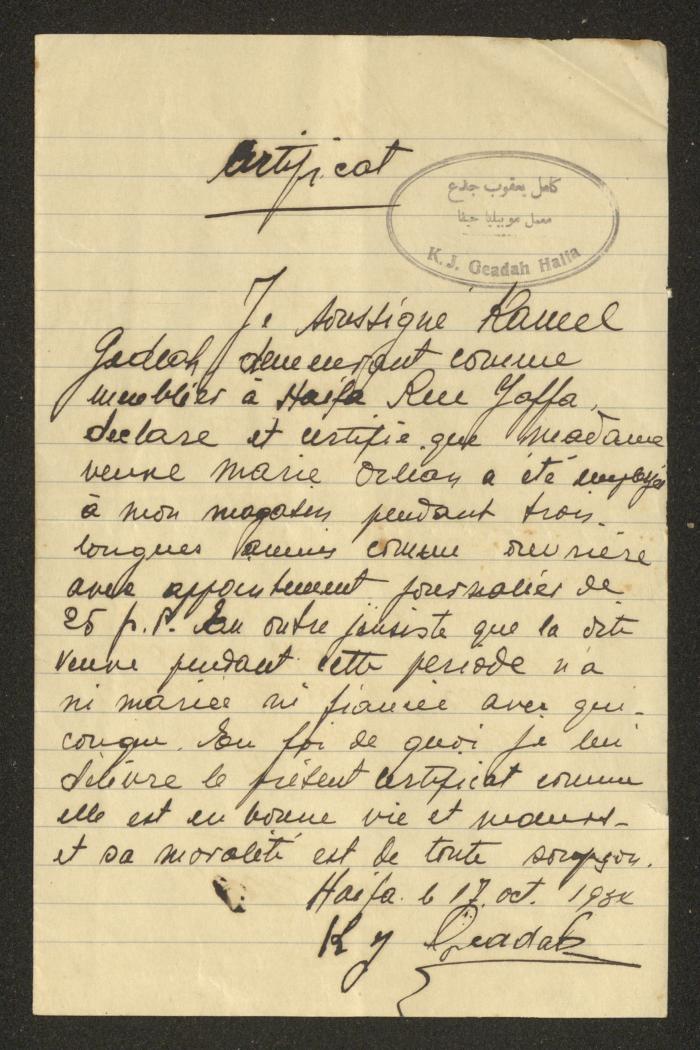 Certificat
كامل يعقوب جدع
معمل موبيليا حيفا
K. J. Geadah Haifa
Je soussigné Kamel
Geadah demeurant comme
meublier à Haifa Rue Jaffa,
declare et certifie que madame
veuve marie a été employée
à mon magasin pendant trois
longues années comme ouvrière
avec appointement journalier de
25 p. P. En outre j'insiste que la dite
veuve pendant cette periode n'a
ni mariée ni fiancée avec qui-
conque. En foi de quoi je lui
délivre le présent certificat comme
elle est en bonne vie et mœurs
et sa moralité est de toute soupçon.
Haifa le 17 oct.
K J Geadah